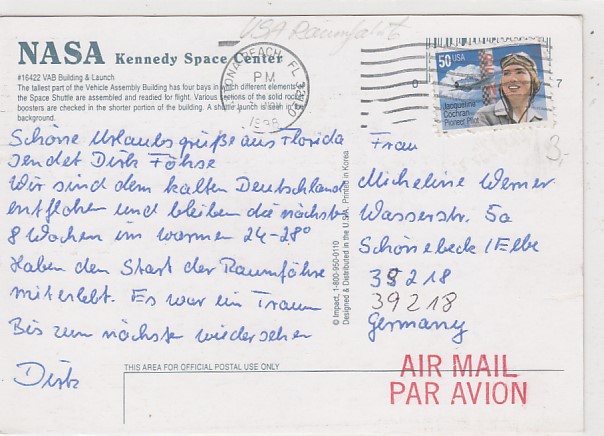 USA Raumfahrt
NASA Kennedy Space Center
#16422 VAB Building & Launch
The tallest part of the Vehicle Assembly Building has four bays in which different elements of
the Space Shuttle are assembled and readied for flight. Various sections of the solid rocket
boosters are checked in the shorter portion of the building. A shuttle launch is seen in
background.
BEACH, FL
PM
1998
50 USA
Jacqueline
Cochran
Pioneer Pilot
0 7
3,-
Schöne Urlaubsgrüße aus Florida
sendet Dirk Föhse
Wir sind dem kalten Deutschland
entflohen und bleiben die nächsten
8 Wochen im warmen 24-28°
Haben den Start der Raumfähre
miterlebt. Es war ein Traum
Bis zum nächste wiedersehen
Dirk
© Impact, 1-800-950-0110
Designed & Distributed in the U.S.A. Printed in Korea
Frau
Micheline Werner
Wasserstr. 5a
Schönebeck/Elbe
39218
39218
Germany
AIR MAIL
PAR AVION
THIS AREA FOR OFFICIAL POSTAL USE ONLY